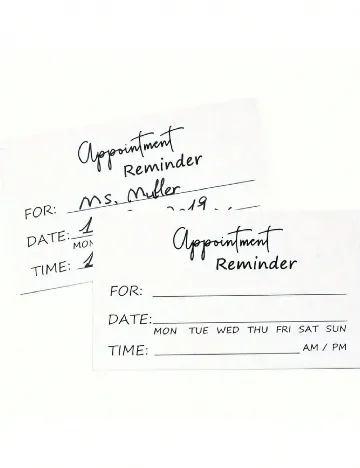 Appointment
Reminder
FOR: Ms. Muller
DATE: 1 2019
MON
TIME:
Appointment
Reminder
FOR:
DATE:
MON TUE WED THU FRI SAT SUN
TIME: AM / PM